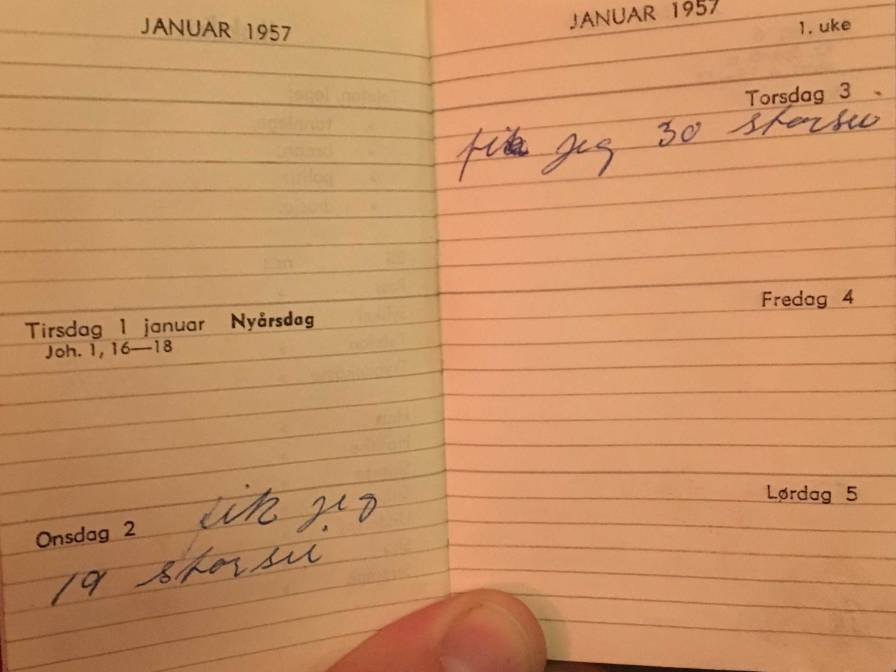 JANUAR 1957
Tirsdag 1 januar Nyårsdag
Joh. 1, 16—18
Onsdag 2 fik jeg
19 storsei
JANUAR 1957
1. uke
Torsdag 3
fik jeg 30 storsei
Fredag 4
Lørdag 5